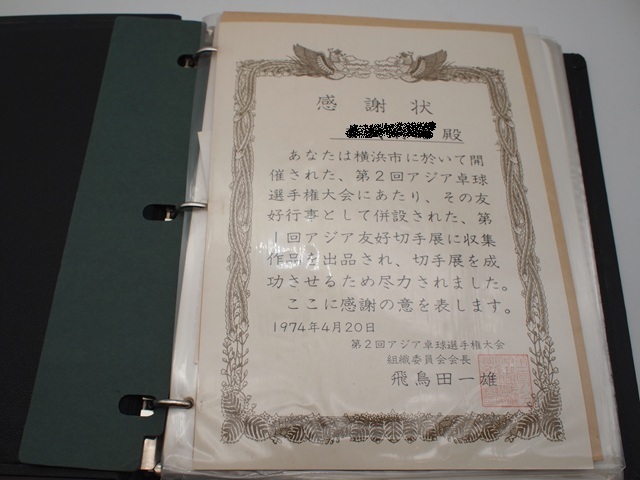 感謝状
殿
あなたは横浜市に於いて開
催された、第2回アジア卓球
選手権大会にあたり、その友
好行事として併設された、第
1回アジア友好切手展に収集
作品を出品され、切手展を成
功させるため尽力されました。
ここに感謝の意を表します。
1974年4月20日
第2回アジア卓球選手権大会
組織委員会会長
飛鳥田一雄